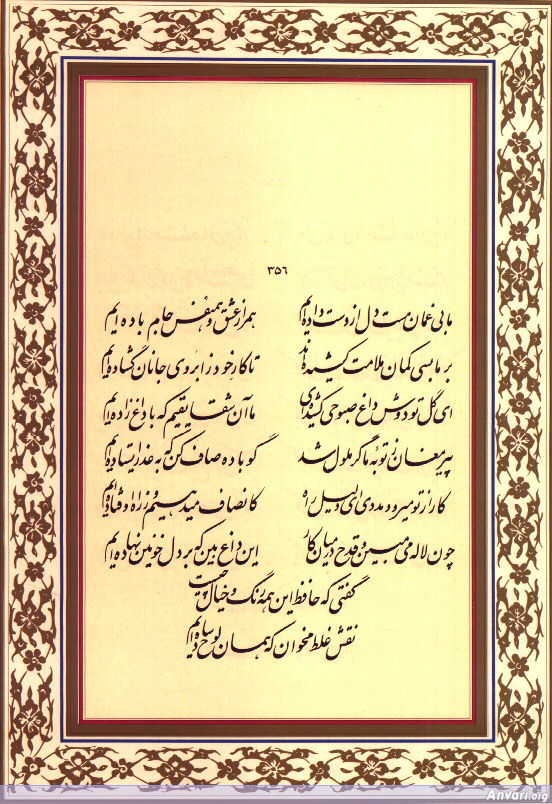 ۳۵۶
ما بی غمان مست دل از دست داده‌ایم همراز عشق و همنفس جام باده‌ایم
بر ما بسی کمان ملامت کشیده‌اند تا کار خود ز ابروی جانان گشاده‌ایم
ای گل تو دوش داغ صبوحی کشیده‌ای ما آن شقایقیم که با داغ زاده‌ایم
پیر مغان ز توبهٔ ما گر ملول شد گو باده صاف کن که به عذر ایستاده‌ایم
کار از تو میرود مددی ای دلیل راه کانصاف میدهیم و ز راه اوفتاده‌ایم
چون لاله می مبین و قدح در میان کار این داغ بین که بر دل خونین نهاده‌ایم
گفتی که حافظ این همه رنگ و خیال چیست
نقش غلط مخوان که همان لوح ساده‌ایم
Anvari.org